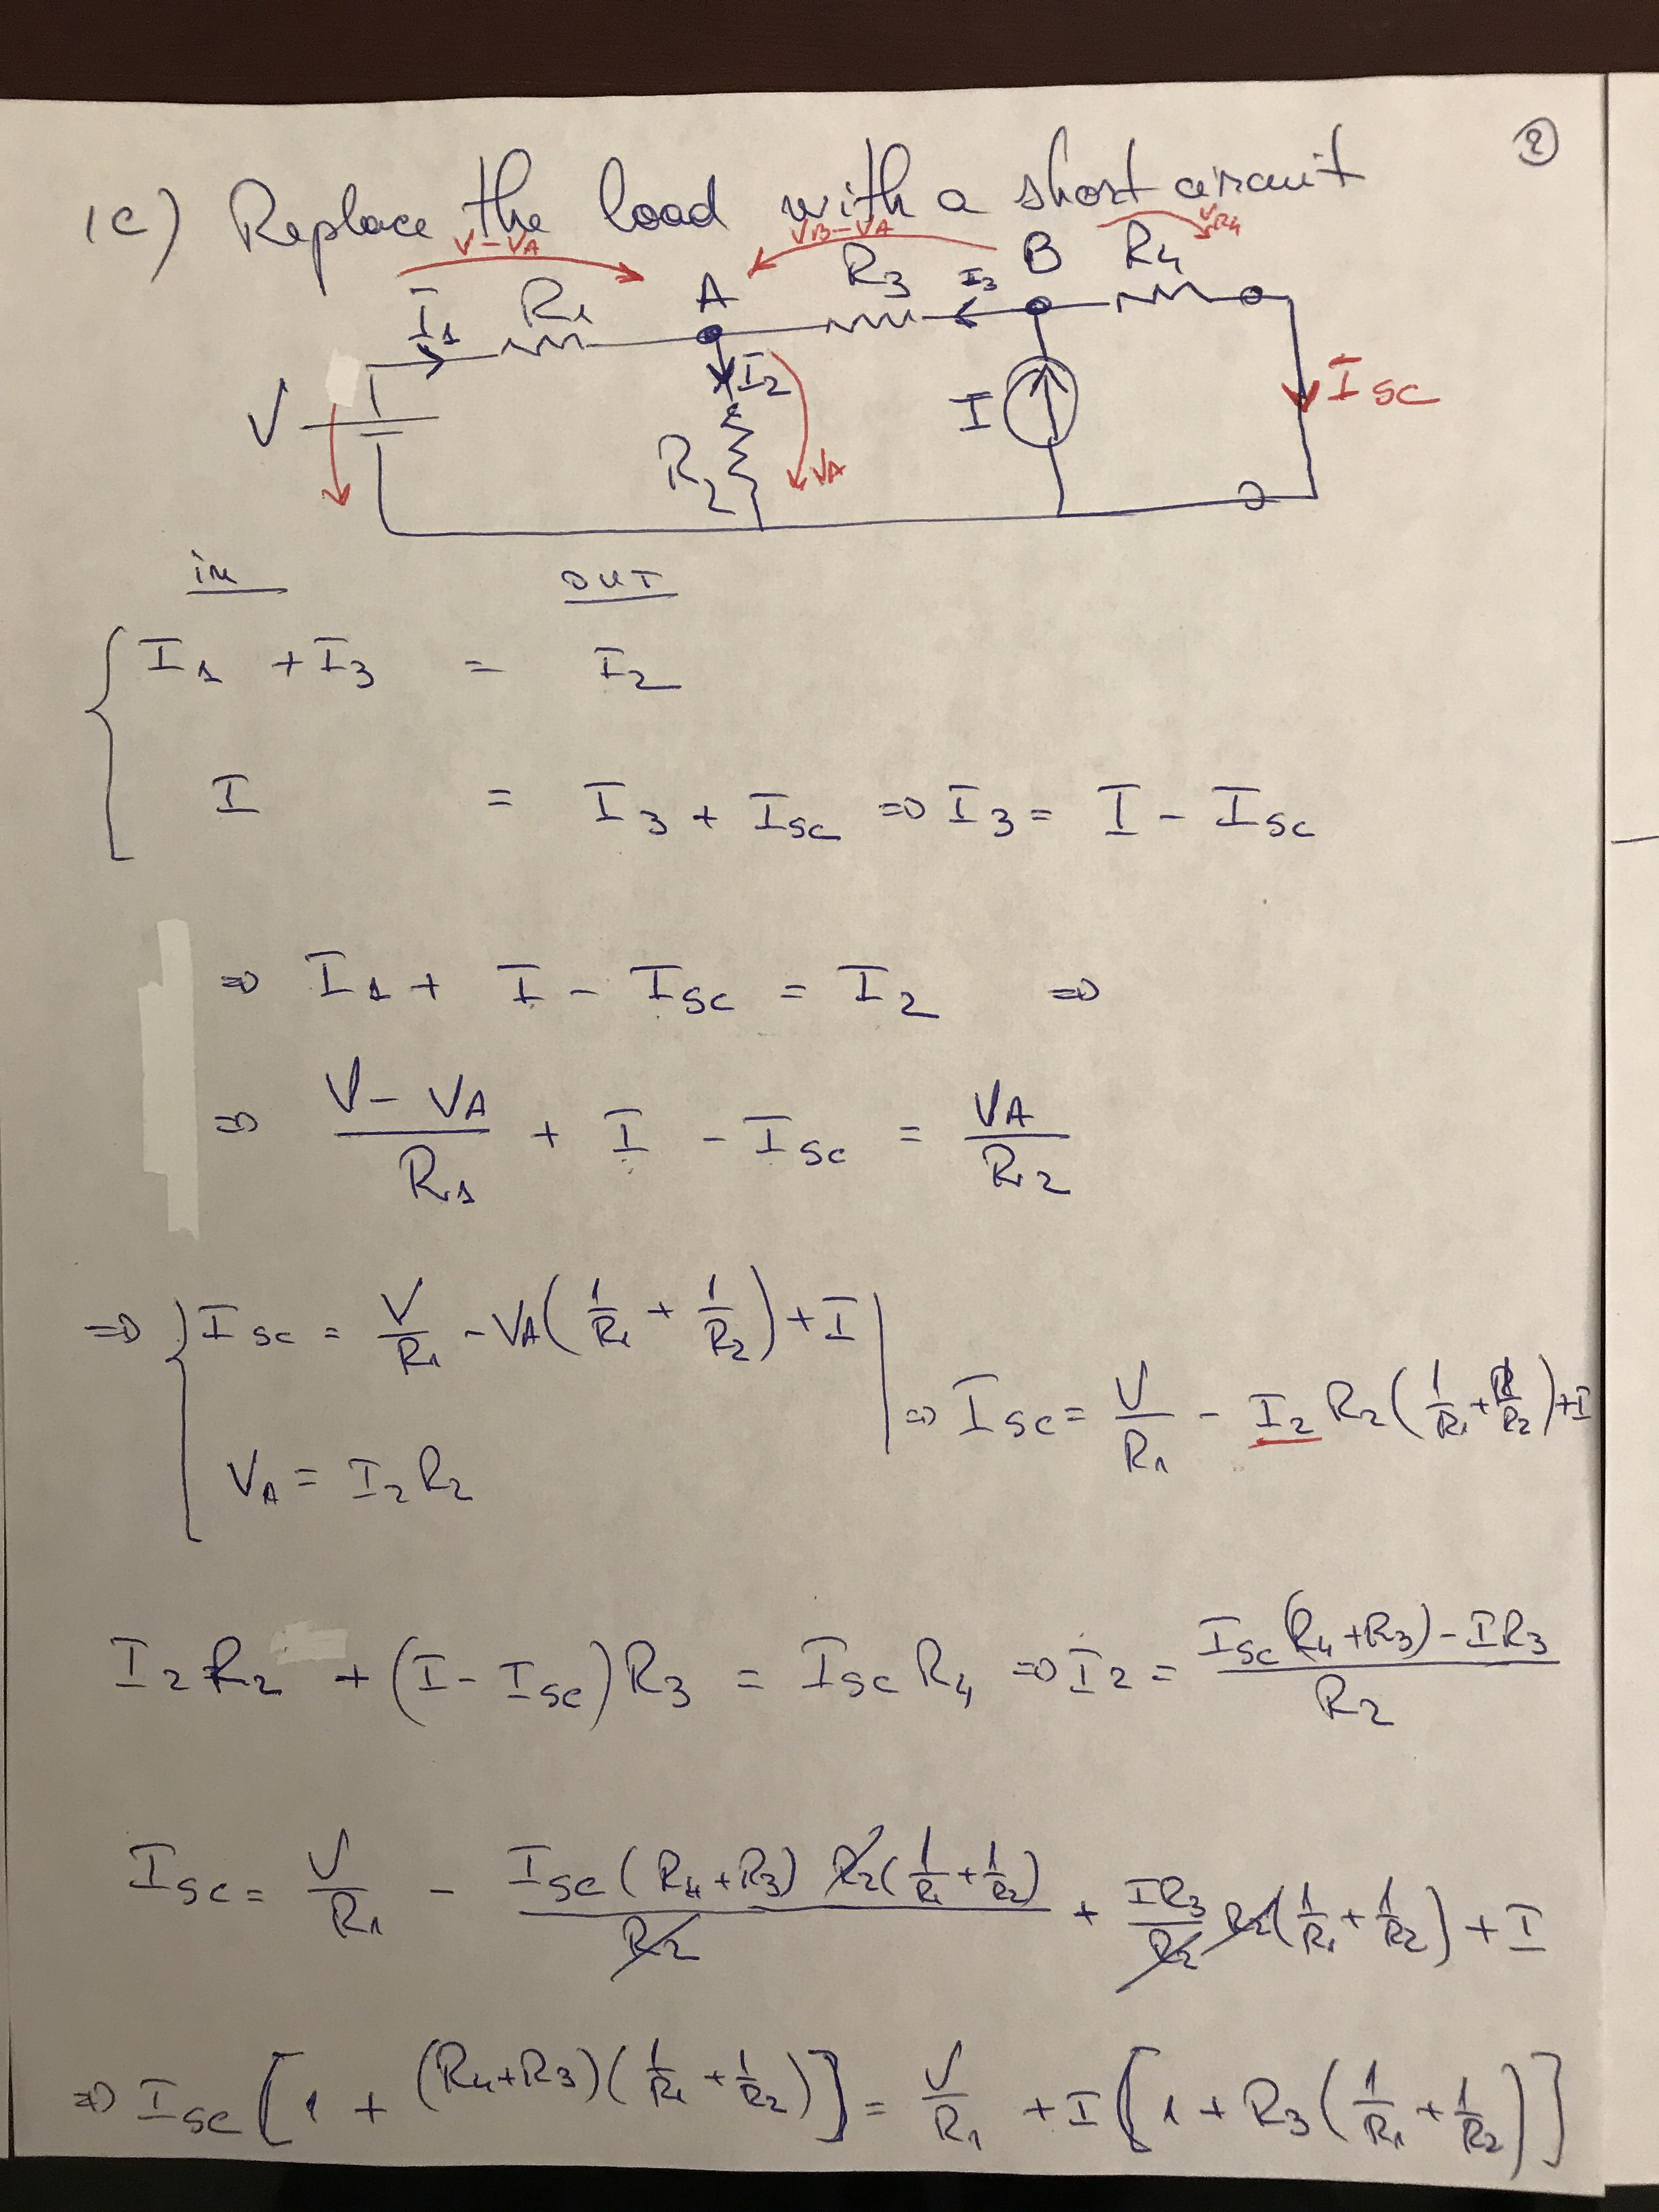 ②
1c) Replace the load with a short circuit
V-VA VB-VA VR4
I1 R1 A R3 I3 B R4
V I2 R2 VA I ISC
in OUT
I1 + I3 = I2
I = I3 + ISC => I3 = I - ISC
=> I1 + I - ISC = I2 =>
=> (V - VA)/R1 + I - ISC = VA/R2
=> { ISC = V/R1 - VA(1/R1 + 1/R2) + I
VA = I2 R2
=> ISC = V/R1 - I2 R2(1/R1 + 1/R2) + I
I2 R2 + (I - ISC)R3 = ISC R4 => I2 = (ISC(R4+R3) - IR3)/R2
ISC = V/R1 - (ISC(R4+R3) R2(1/R1 + 1/R2))/R2 + IR3/R2 R2(1/R1 + 1/R2) + I
=> ISC[1 + (R4+R3)(1/R1 + 1/R2)] = V/R1 + I[1 + R3(1/R1 + 1/R2)]